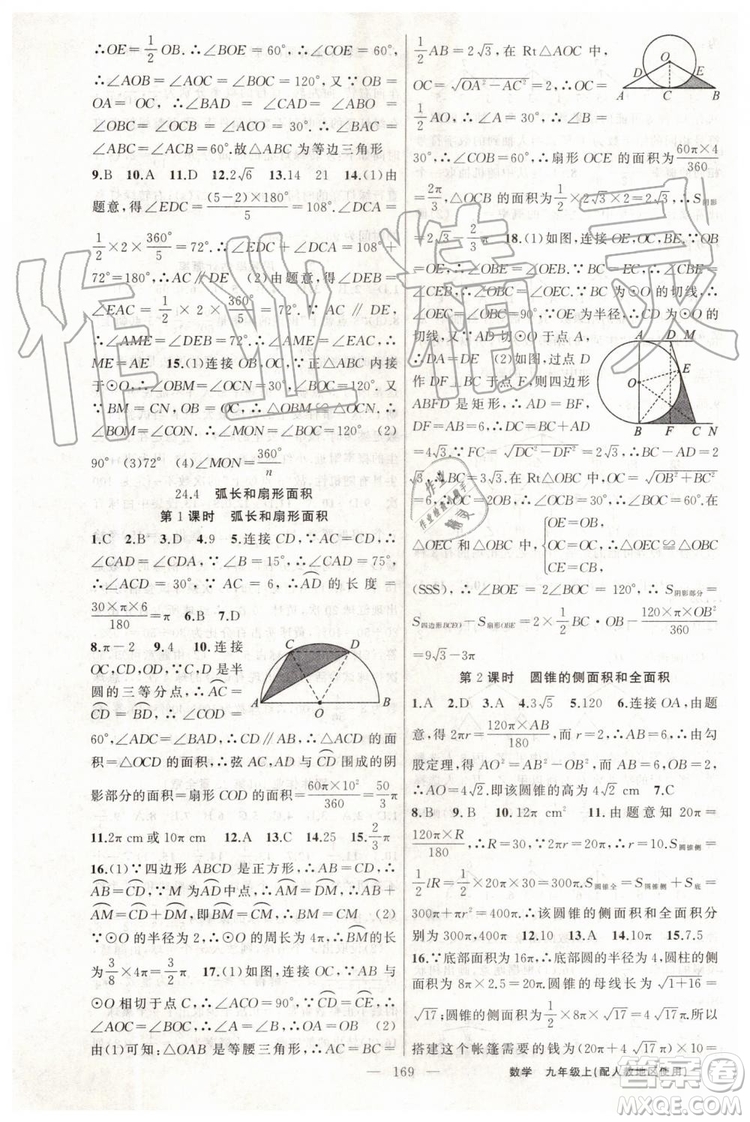 ∴OE=1/2 OB. ∴∠BOE=60°,∴∠COE=60°,
∴∠AOB=∠AOC=∠BOC=120°,又∵OB=
OA=OC,∴∠BAD=∠CAD=∠ABO=
∠OBC=∠OCB=∠OCA=30°. ∴∠BAC=
∠ABC=∠ACB=60°.故△ABC为等边三角形
9.B 10.A 11.D 12.2√3 13.14 21 14.(1)由
题意,得∠EDC=(5-2)×180°/5=108°.∠DCA=
1/2×2×360°/5=72°. ∴∠EDC+∠DCA=108°+
72°=180°,∴AC∥DE (2)由题意,得∠DEB=
∠EAC=1/2×2×360°/5=72°,∵AC∥DE,
∴∠AME=∠DEB=72°,∴∠AME=∠EAC,∴
ME=AE 15.(1)连接OB,OC,∵正△ABC内接
于⊙O,∴∠OBM=∠OCN=30°,∠BOC=120°.又
∵BM=CN,OB=OC,∴△OBM≌△OCN(SAS),
∴∠BOM=∠CON,∴∠MON=∠BOC=120° (2)
90° (3)72° (4)∠MON=360°/n
24.4 弧长和扇形面积
第1课时 弧长和扇形面积
1.C 2.B 3.D 4.9 5.连接CD,∵AC=CD,
∴∠A=∠CDA,∵∠B=15°,∴∠A=∠CDA=
75°,∴∠ACD=30°,∵AC=6,∴AD的长度=
30×π×6/180=π 6.B 7.D
8.π-2 9.4 10.连接
OC,CD,OD,∵C,D是半
圆的三等分点,∴AC=
CD=DB,∴∠COD=
60°,∠ABC=∠BAD,∴CD∥AB,∴S△ACD=
S△OCD,∴弦AC,AD与CD围成的阴
影部分的面积=扇形COD的面积=60π×10²/360=50/3π
11.2π cm或10π cm 12.A 13.C 14.25 15.2/3π
16.(1)∵四边形ABCD是正方形,∴AB=CD,∴
AB=CD,∵M为AD中点,∴AM=DM,∴
AB+AM=CD+DM,即BM=CM,∴BM=CM (2)
∵⊙O的半径为2,∴⊙O的周长为4π,∴BM的长=
3/8×4π=3/2π 17.(1)如图,连接OE,OC,∵AB与
⊙O相切,∴∠ACO=90°,∵CD=CE,∴
∠AOC=∠BOC,∴∠A=∠B,∴OA=OB (2)
由(1)可知:△OAB是等腰三角形,∴BC=
1/2AB=2√3,在Rt△AOC中,
OC=√(OA²-AC²)=2,∴OC=
1/2AO,∴∠A=30°,∴∠B=
30°,∴∠COB=60°,∴扇形OCE的面积=60π×4/360
=2π/3,△OCB的面积为:1/2×2√3×2=2√3,∴S阴影
=2√3-2/3π 18.(1)如图,连接OE,OC,∵OB=OE,
∴∠OBE=∠OEB,∵BC=EC,∴∠CBE=∠CEB,
∴∠OBC=∠OEC,∵BC为⊙O的切线,∴
∠OEC=∠OBC=90°,∵OE为半径,∴CD为⊙O的
切线,∵AD切⊙O于点A,∴
DA=DE (2)如图,过点D
作DF⊥BC于点F,则四边形
ABFD是矩形,∴AD=BF,
DF=AB=6,∴DC=BC+AD
=4√3,∵FC=√(DC²-DF²)=2√3,∴BC-AD=
2√3,∴BC=3√3,在Rt△OBC中,OC=√(OB²+BC²)=
6=2OB,∴∠BCO=30°,∠BOC=60°,在
△OEC和△OBC中,{OE=OB, OC=OC, CE=CB, ∴△OEC≌△OBC
(SSS),∴∠BOE=2∠BOC=120°,∴S阴影部分=
S四边形BCEO-S扇形OBE=2×1/2BC·OB-120×π×OB²/360
=9√3-3π
第2课时 圆锥的侧面积和全面积
1.A 2.D 3.A 4.3√5 5.120 6.连接OA,由题
意,得AB=6,由题意,得2πr=120π×AB/180,∴r=2,由勾
股定理,得AO²+r²=AB²,即AO²+2²=6²,∴
AO=4√2 cm,即该圆锥的高为4√2 cm 7.C
8.B 9.B 10.12π cm² 11.由题意知2πr=
120π×R/180,∴R=30,∴r=10,∴l=20π,∴S圆锥侧=
1/2lR=1/2×20π×30=300π,∴S圆锥全=300π+
100π=400π,∴该圆锥的侧面积和全面积分
别为300π,400π 12.10 13.A 14.A 15.7.5
16.∵底部面积为16π,∴底面圆的半径为4,圆柱的侧面
面积为8π×2.5=20π,圆锥的母线长为√(1+16)=
√17;圆锥的侧面积为1/2×8π×√17=4√17π,所以
搭建这样一个帐篷的需要20π+4√17π=
— 169 — 数学 九年级上(配人教地区使用)
作业精灵